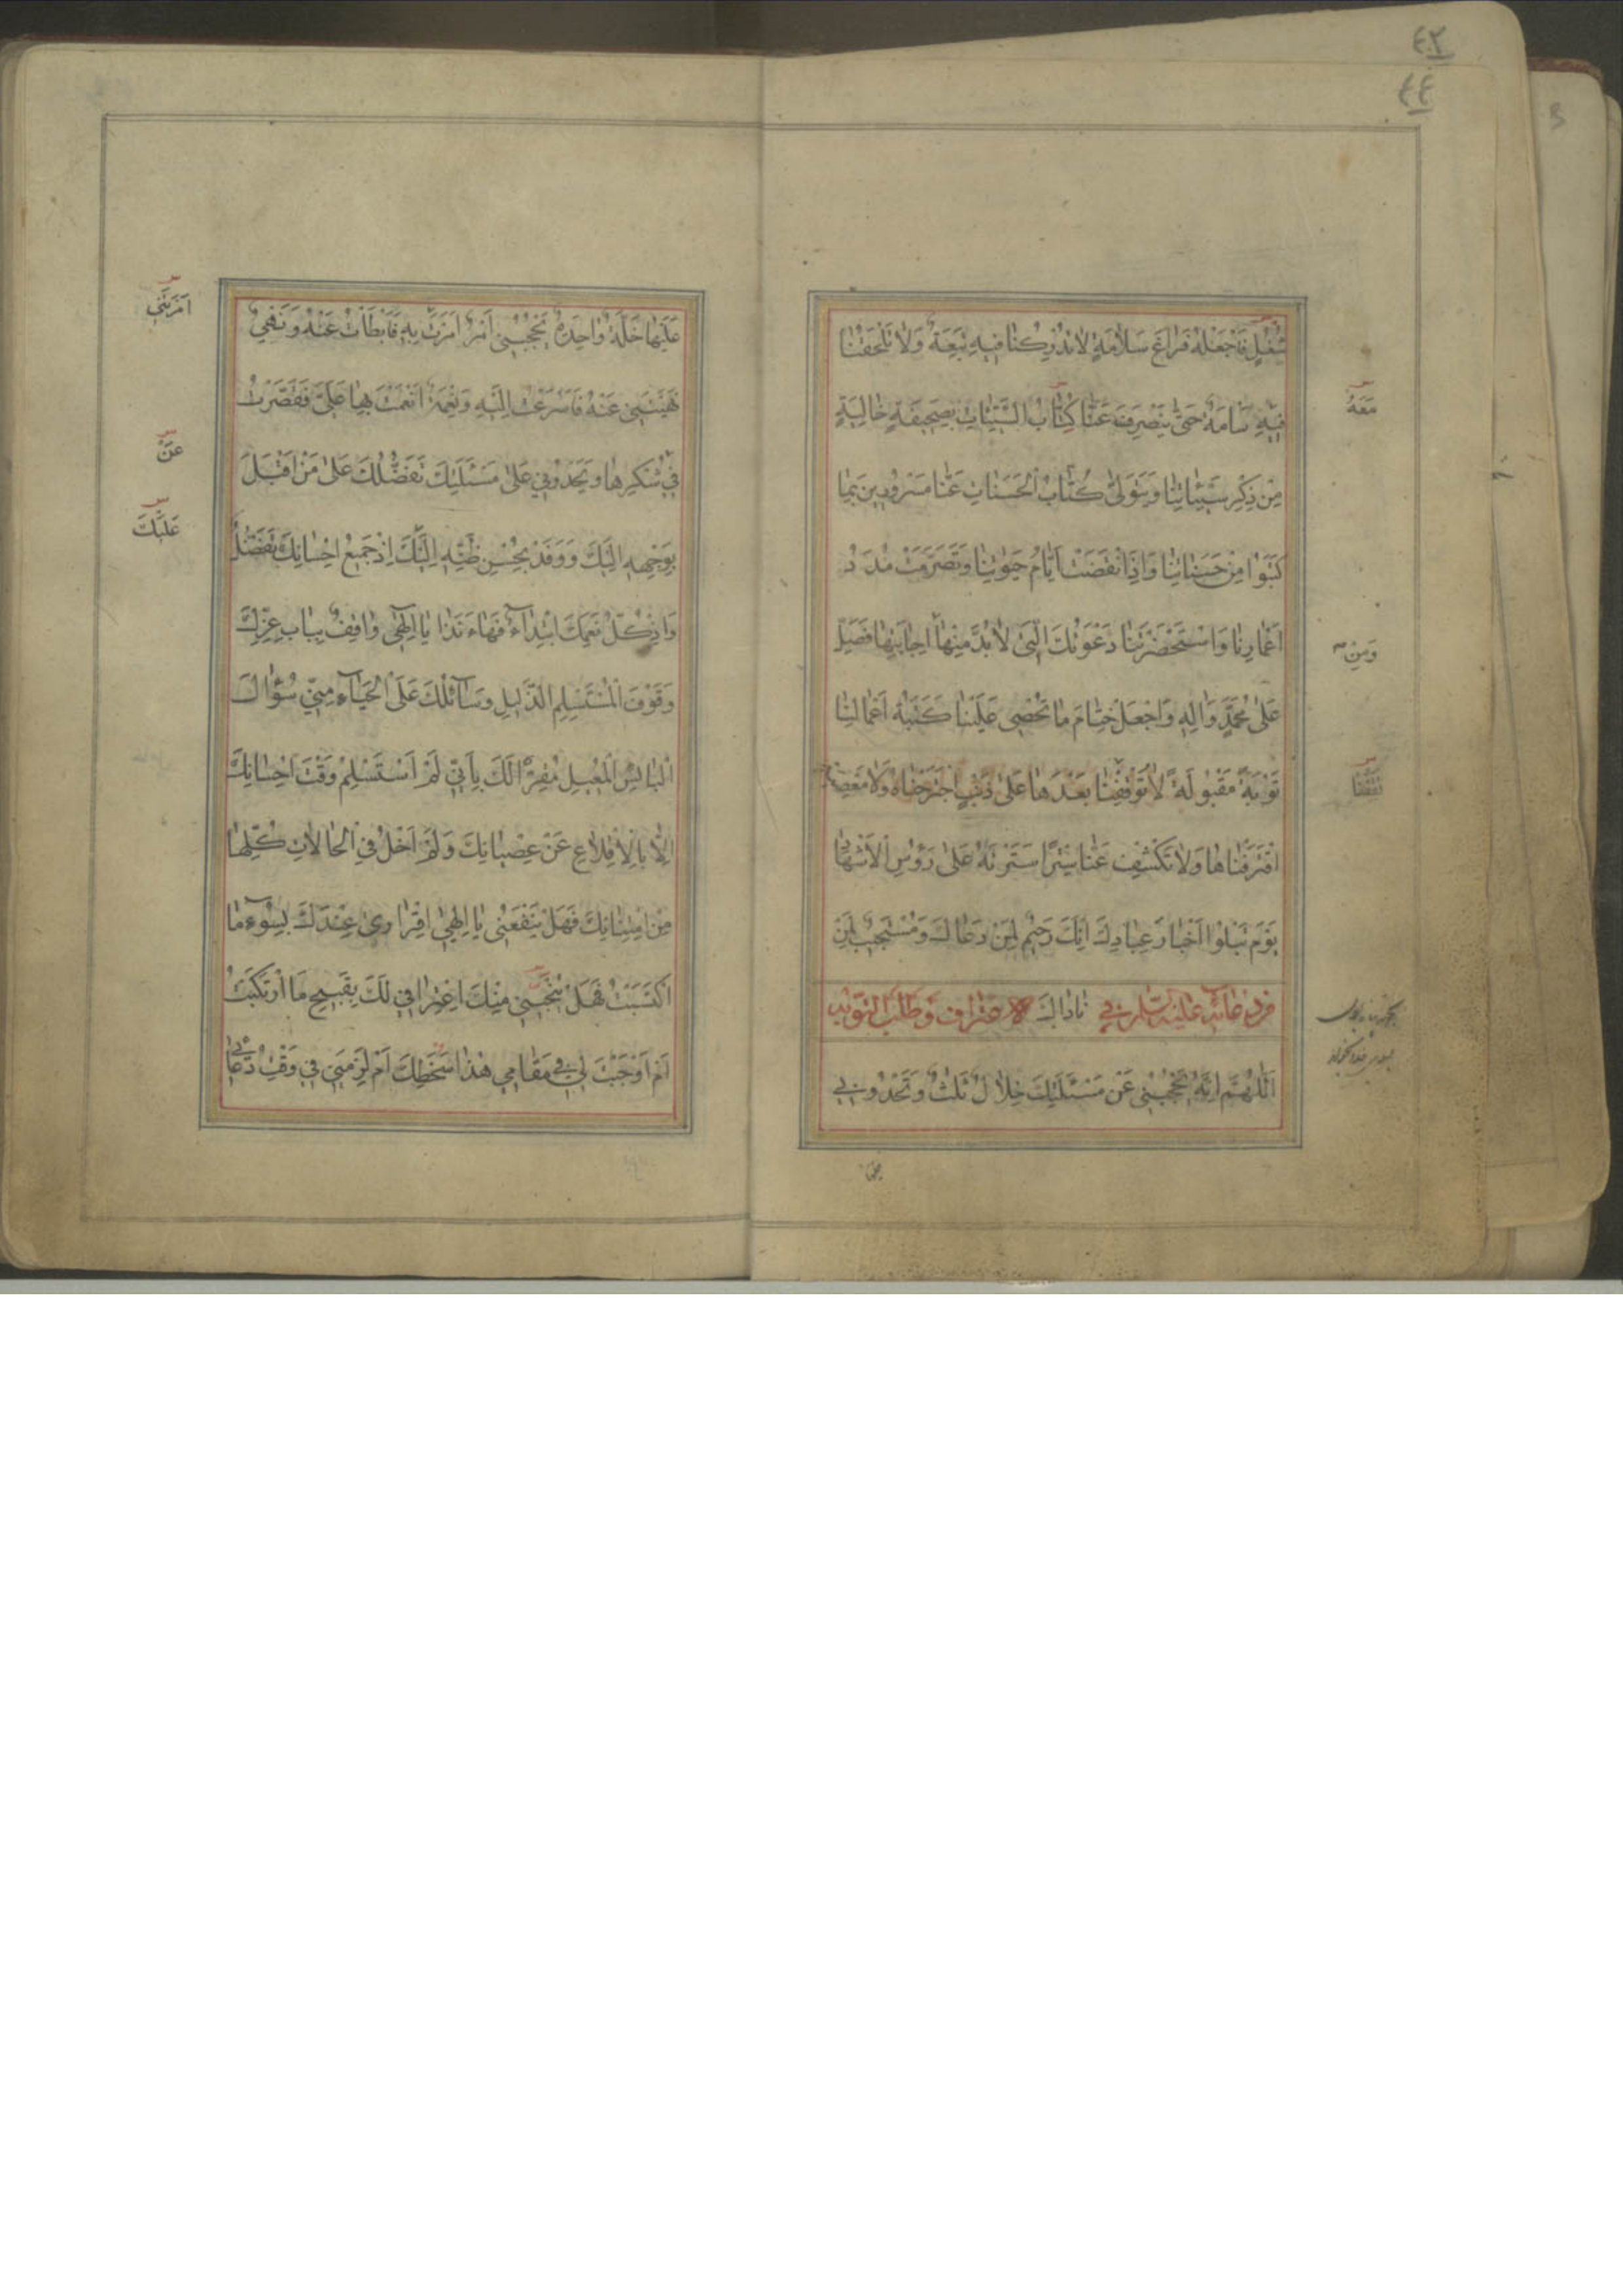 ٤٢
٤٤
شُغْلٍ فَاجْعَلْهُ فَرَاغَ سَلَامَةٍ لَا تُدْرِكُنَا فِيهِ تَبِعَةٌ وَلَا تَلْحَقُنَا
فِيهِ سَامَةٌ حَتَّى يَنْصَرِفَ عَنَّا كُتَّابُ السَّيِّئَاتِ بِصَحِيفَةٍ خَالِيَةٍ
مِنْ ذِكْرِ سَيِّئَاتِنَا وَيَتَوَلَّى كُتَّابُ الْحَسَنَاتِ عَنَّا مَسْرُورِينَ بِمَا
كَتَبُوا مِنْ حَسَنَاتِنَا وَإِذَا انْقَضَتْ أَيَّامُ حَيٰوتِنَا وَتَصَرَّمَتْ مُدَدُ
أَعْمَارِنَا وَاسْتَحْضَرَتْنَا دَعْوَتُكَ الَّتِي لَا بُدَّ مِنْهَا إِجَابَتِهَا فَصَلِّ
عَلَى مُحَمَّدٍ وَآلِهِ وَاجْعَلْ خِتَامَ مَا تُحْصِي عَلَيْنَا كَتَبَةُ أَعْمَالِنَا
تَوْبَةً مَقْبُولَةً لَا تُوقِفُنَا بَعْدَهَا عَلَى ذَنْبٍ اجْتَرَحْنَاهُ وَلَا مَعْصِيَةٍ
اقْتَرَفْنَاهَا وَلَا تَكْشِفْ عَنَّا سِتْرًا سَتَرْتَهُ عَلَى رُؤُسِ الْأَشْهَادِ
يَوْمَ تَبْلُوا أَخْبَارَ عِبَادِكَ إِنَّكَ رَحِيمٌ لِمَنْ دَعَاكَ وَمُسْتَجِيبٌ لِمَنْ
نَادَاكَ
اَللّٰهُمَّ إِنَّهُ يَحْجُبُنِي عَنْ مَسْئَلَتِكَ خِلَالٌ ثَلٰثٌ وَتَحْدُونِي
مَعَهُ
وَمِنْ
عَلَيْهَا خَلَّةٌ وَاحِدَةٌ يَحْجُبُنِي أَمْرٌ أَمَرْتَ بِهِ فَأَبْطَأْتُ عَنْهُ وَنَهْيٌ
نَهَيْتَنِي عَنْهُ فَأَسْرَعْتُ إِلَيْهِ وَنِعْمَةٌ أَنْعَمْتَ بِهَا عَلَيَّ فَقَصَّرْتُ
فِي شُكْرِهَا وَيَحْدُونِي عَلَى مَسْئَلَتِكَ تَفَضُّلُكَ عَلَى مَنْ أَقْبَلَ
بِوَجْهِهِ إِلَيْكَ وَوَفَدَ بِحُسْنِ ظَنِّهِ إِلَيْكَ إِذْ جَمِيعُ إِحْسَانِكَ تَفَضُّلٌ
وَإِذْ كُلُّ نِعَمِكَ ابْتِدَاءٌ فَهَا أَنَا ذَا يَا إِلٰهِي وَاقِفٌ بِبَابِ عِزِّكَ
وُقُوفَ الْمُسْتَسْلِمِ الذَّلِيلِ وَسَائِلُكَ عَلَى الْحَيَاءِ مِنِّي سُؤَالَ
الْبَائِسِ الْمُعِيلِ مُقِرٌّ لَكَ بِأَنِّي لَمْ أَسْتَسْلِمْ وَقْتَ إِحْسَانِكَ
إِلَّا بِالْإِقْلَاعِ عَنْ عِصْيَانِكَ وَلَمْ أَخْلُ فِي الْحَالَاتِ كُلِّهَا
مِنِ امْتِنَانِكَ فَهَلْ يَنْفَعُنِي يَا إِلٰهِي إِقْرَارِي عِنْدَكَ بِسُوءِ مَا
اكْتَسَبْتُ فَهَلْ يُنْجِينِي مِنْكَ اعْتِرَافِي لَكَ بِقَبِيحِ مَا ارْتَكَبْتُ
أَمْ أَوْجَبْتَ لِي فِي مَقَامِي هٰذَا سَخَطَكَ أَمْ لَزِمَنِي فِي وَقْتِ دُعَائِي
أَمَرْتَنِي
عَنْ
عَلَيْكَ